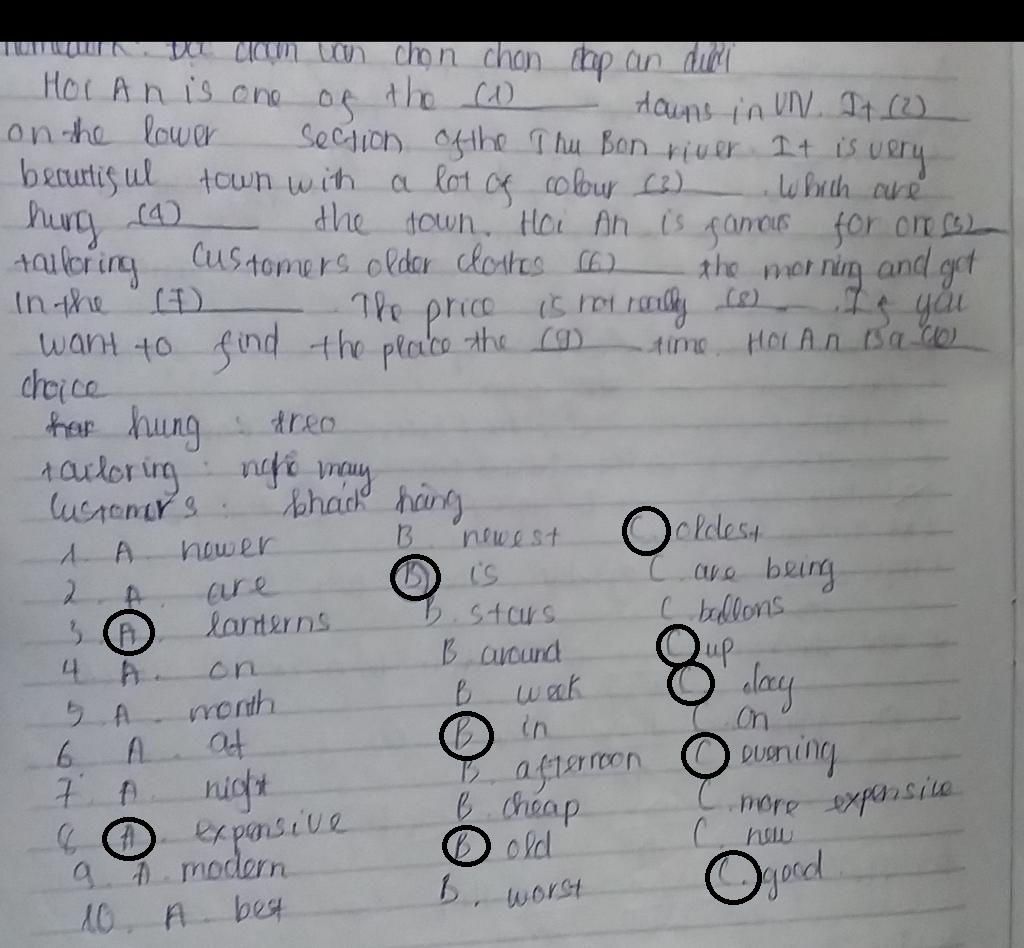 homework: Đọc đoạn văn chọn chọn đáp án dưới
Hoi An is one of the (1) towns in VN. It (2)
on the lower section of the Thu Bon river. It is very
beautiful town with a lot of colour (3) . Which are
hung (4) the town. Hoi An is famous for one (5)
tailoring Customers older clothes (6) the morning and get
in the (7) . The price is not really (8) . If you
want to find the place the (9) time. Hoi An is a (10)
choice
hung : treo
tailoring : nghề may
Customers : khách hàng
1. A newer B newest C oldest
2. A are B is C are being
3 A. lanterns B. stars C ballons
4 A. on B around C up
5 A. month B week C day
6 A. at B in C on
7. A. night B. afternoon C evening
8 A. expensive B cheap C. more expensive
9. A. modern B old C. new
10. A. best B. worst C. good